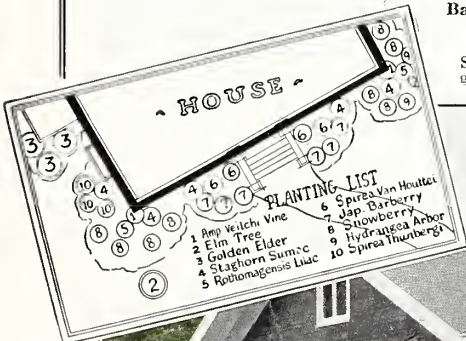 Ba
S
g
8
8
9
1
5
8
4
8
9
HOUSE
3
3
3
10
4
10
10
5
1
4
8
8
8
5
8
2
4
6
6
7
7
6
6
7
4
7
7
PLANTING LIST
1 Amp Veitchi Vine
2 Elm Tree
3 Golden Elder
4 Staghorn Sumac
5 Rothomagensis Lilac
6 Spirea Van Houttei
7 Jap. Barberry
8 Snowberry
9 Hydrangea Arbor
10 Spirea Thunbergi